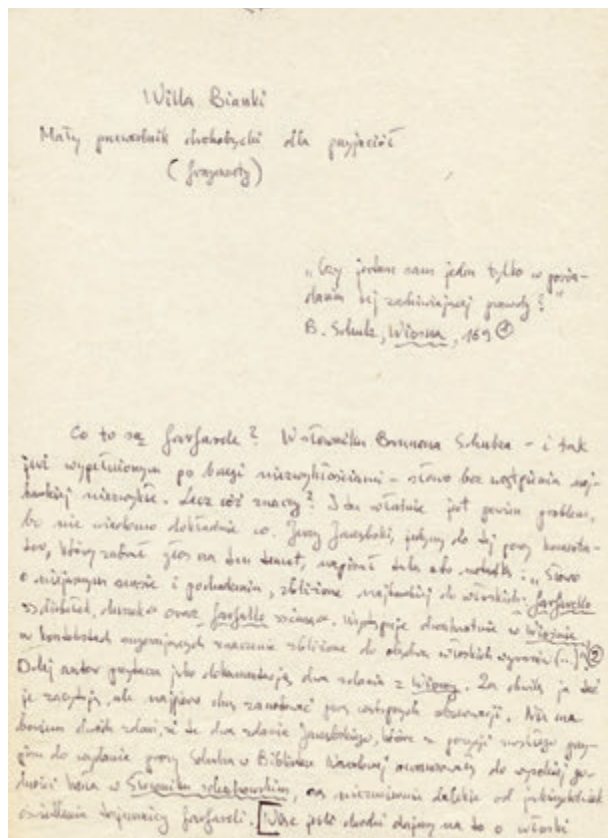 Willa Bianki
Mały przewodnik drohobycki dla przyjaciół
(fragmenty)
„Czy jestem sam jeden tylko w posia-
daniu tej zadziwiającej prawdy?"
B. Schulz, Wiosna, 169 ①
Co to są farfarele? W słowniku Brunona Schulza – i tak
już wypełnionym po brzegi niezwykłościami – słowo bez wątpienia naj-
bardziej niezwykłe. Lecz cóż znaczy? I tu właśnie jest pewien problem,
bo nie wiadomo dokładnie co. Jerzy Jarzębski, jedyny do tej pory komenta-
tor, który zabrał głos na ten temat, napisał taką oto notatkę: „Słowo
o niejasnym sensie i pochodzeniu, zbliżone najbardziej do włoskich: farfarello
»diabełek, duszek« oraz farfalla »ćma«. Występuje dwukrotnie w Wiośnie
w kontekstach sugerujących znaczenie zbliżone do obydwu włoskich wyrazów (...)" ②
Dalej autor przytacza jako dokumentację dwa zdania z Wiosny. Za chwilę ja też
je zacytuję, ale najpierw chcę zanotować parę wstępnych obserwacji. Nie ma
bowiem dwóch zdań, że te dwa zdania Jarzębskiego, które z przypisu
do wydania prozy Schulza w Bibliotece Narodowej awansowały do wysokiej
godności hasła w Słowniku schulzowskim, są niezmiernie dalekie od jakiegokolwiek
oświetlenia tajemnicy farfareli. [Więc jeśli chodzi